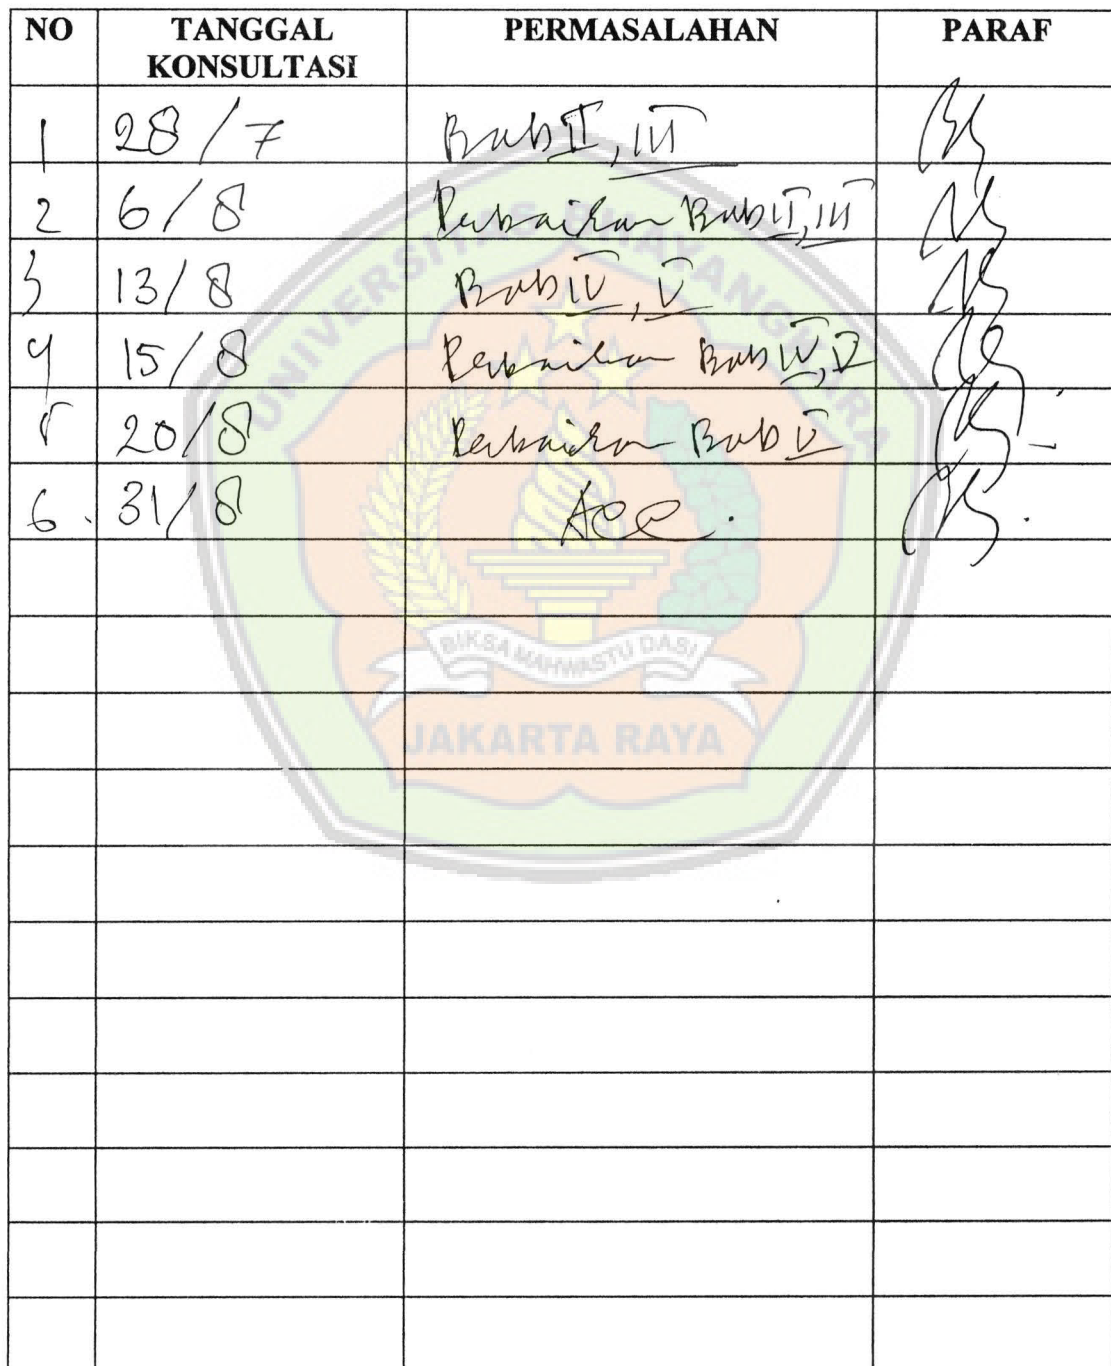 NO TANGGAL KONSULTASI PERMASALAHAN PARAF
1 28/7 Bab II, III
2 6/8 Perbaikan Bab II, III
3 13/8 Bab IV, V
4 15/8 Perbaikan Bab IV, V
5 20/8 Perbaikan Bab V
6. 31/8 Acc.
UNIVERSITAS BHAYANGKARA
BIKSA MAHWASTU DASI
JAKARTA RAYA